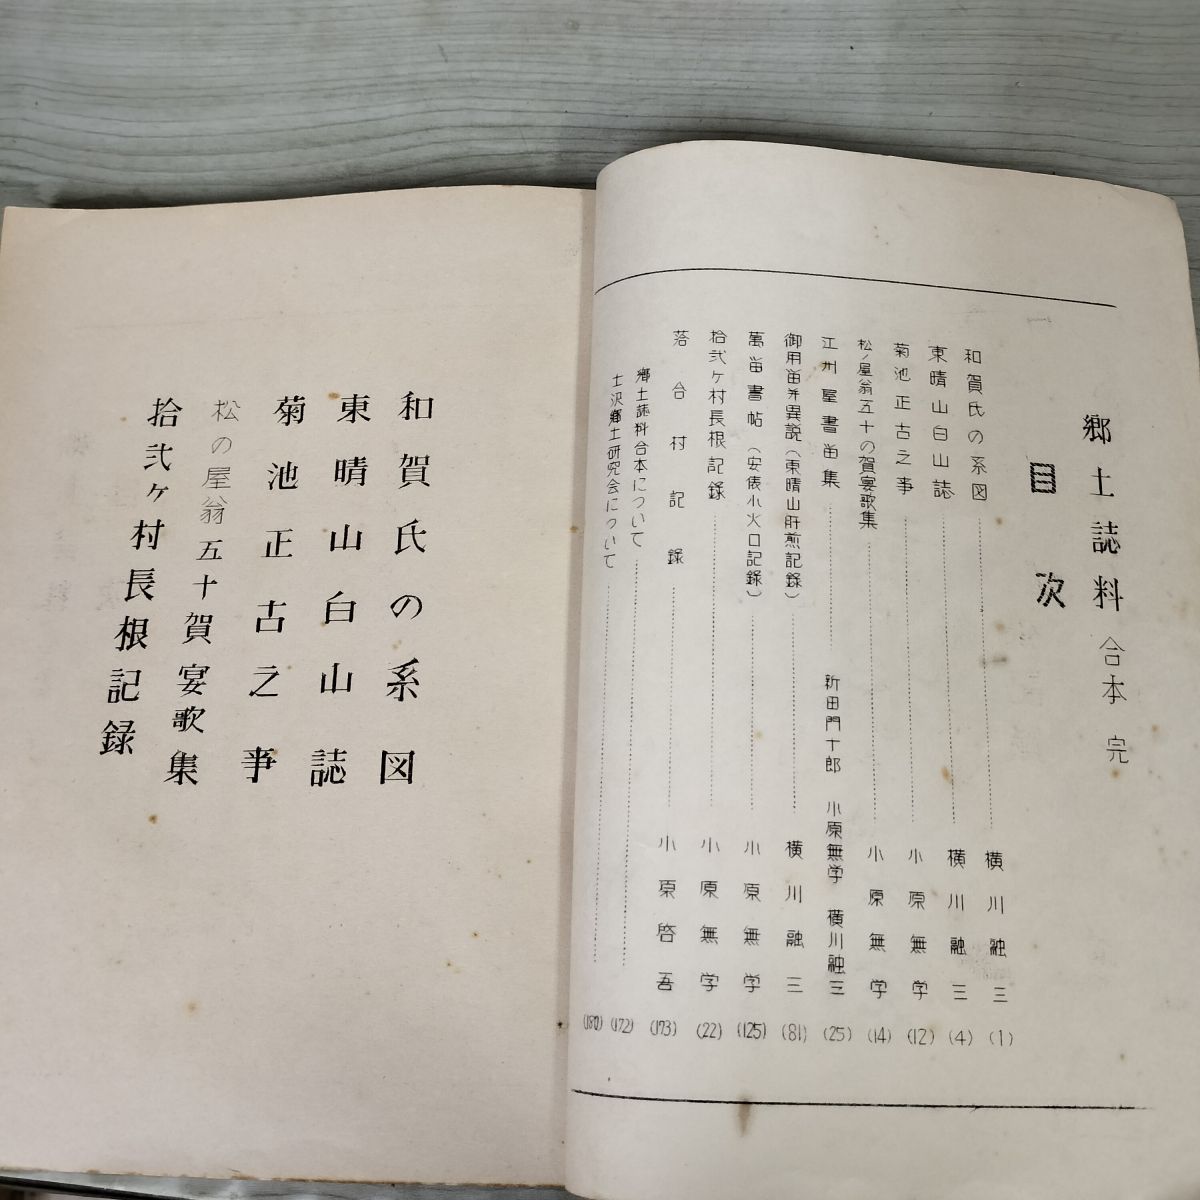 郷土誌料 合本 完
目次
和賀氏の系図 横川融三 (1)
東晴山白山誌 横川融三 (4)
菊池正古之事 小原無学 (12)
松ノ屋翁五十の賀宴歌集 小原無学 (14)
江州屋書畄集 新田門十郎 小原無学 横川融三 (25)
御用畄并異説(東晴山肝煎記録) 横川融三 (81)
萬畄書帖(安俵小火口記録) 小原無学 (125)
拾弐ヶ村長根記録 小原無学 (22)
落合村記録 小原啓吾 (173)
郷土誌料合本について (172)
土沢郷土研究会について
和賀氏の系図
東晴山白山誌
菊池正古之事
松の屋翁五十賀宴歌集
拾弐ヶ村長根記録